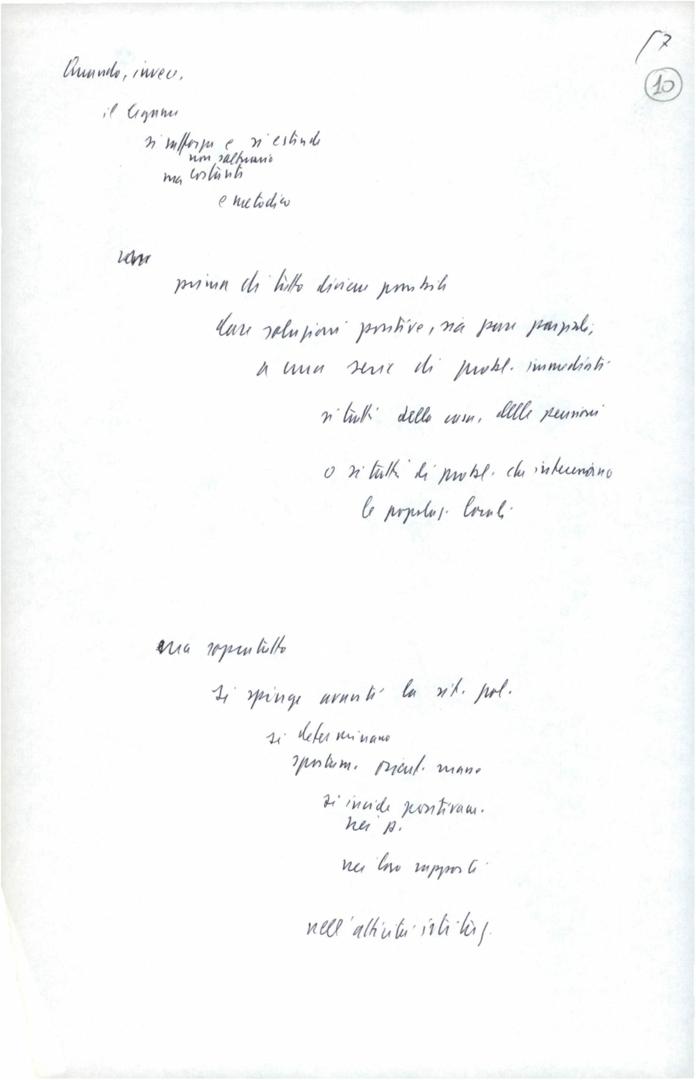 57
10
Quando, invece,
il legame
si rafforza e si estende
non saltuario
ma costante
e metodico
prima di tutto diviene possibile
dare soluzioni positive, sia pure parziali,
a una serie di probl. immediati
si tratti della casa, delle pensioni
o si tratti di probl. che interessano
le popolaz. locali
ma soprattutto
si spinge avanti la sit. pol.
si determinano
spostam. orient. massa
si incide positivam.
nei p.
nei loro rapporti
nell'attività istituz.